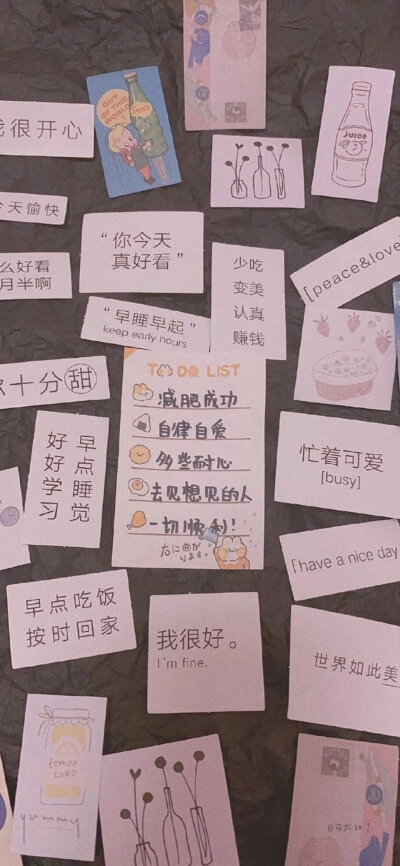 我很开心
OUT
OF THIS
WORLD
JUICE
今天愉快
“你今天
真好看”
少吃
变美
认真
赚钱
[peace&love]
么好看
月半啊
“早睡早起”
keep early hours
TO DO LIST
减肥成功
自律自爱
多些耐心
去见想见的人
一切顺利!
十分甜
早点睡觉
好好学习
忙着可爱
[busy]
「have a nice day
早点吃饭
按时回家
我很好。
I'm fine.
世界如此美
Lemon
CURD
yummy